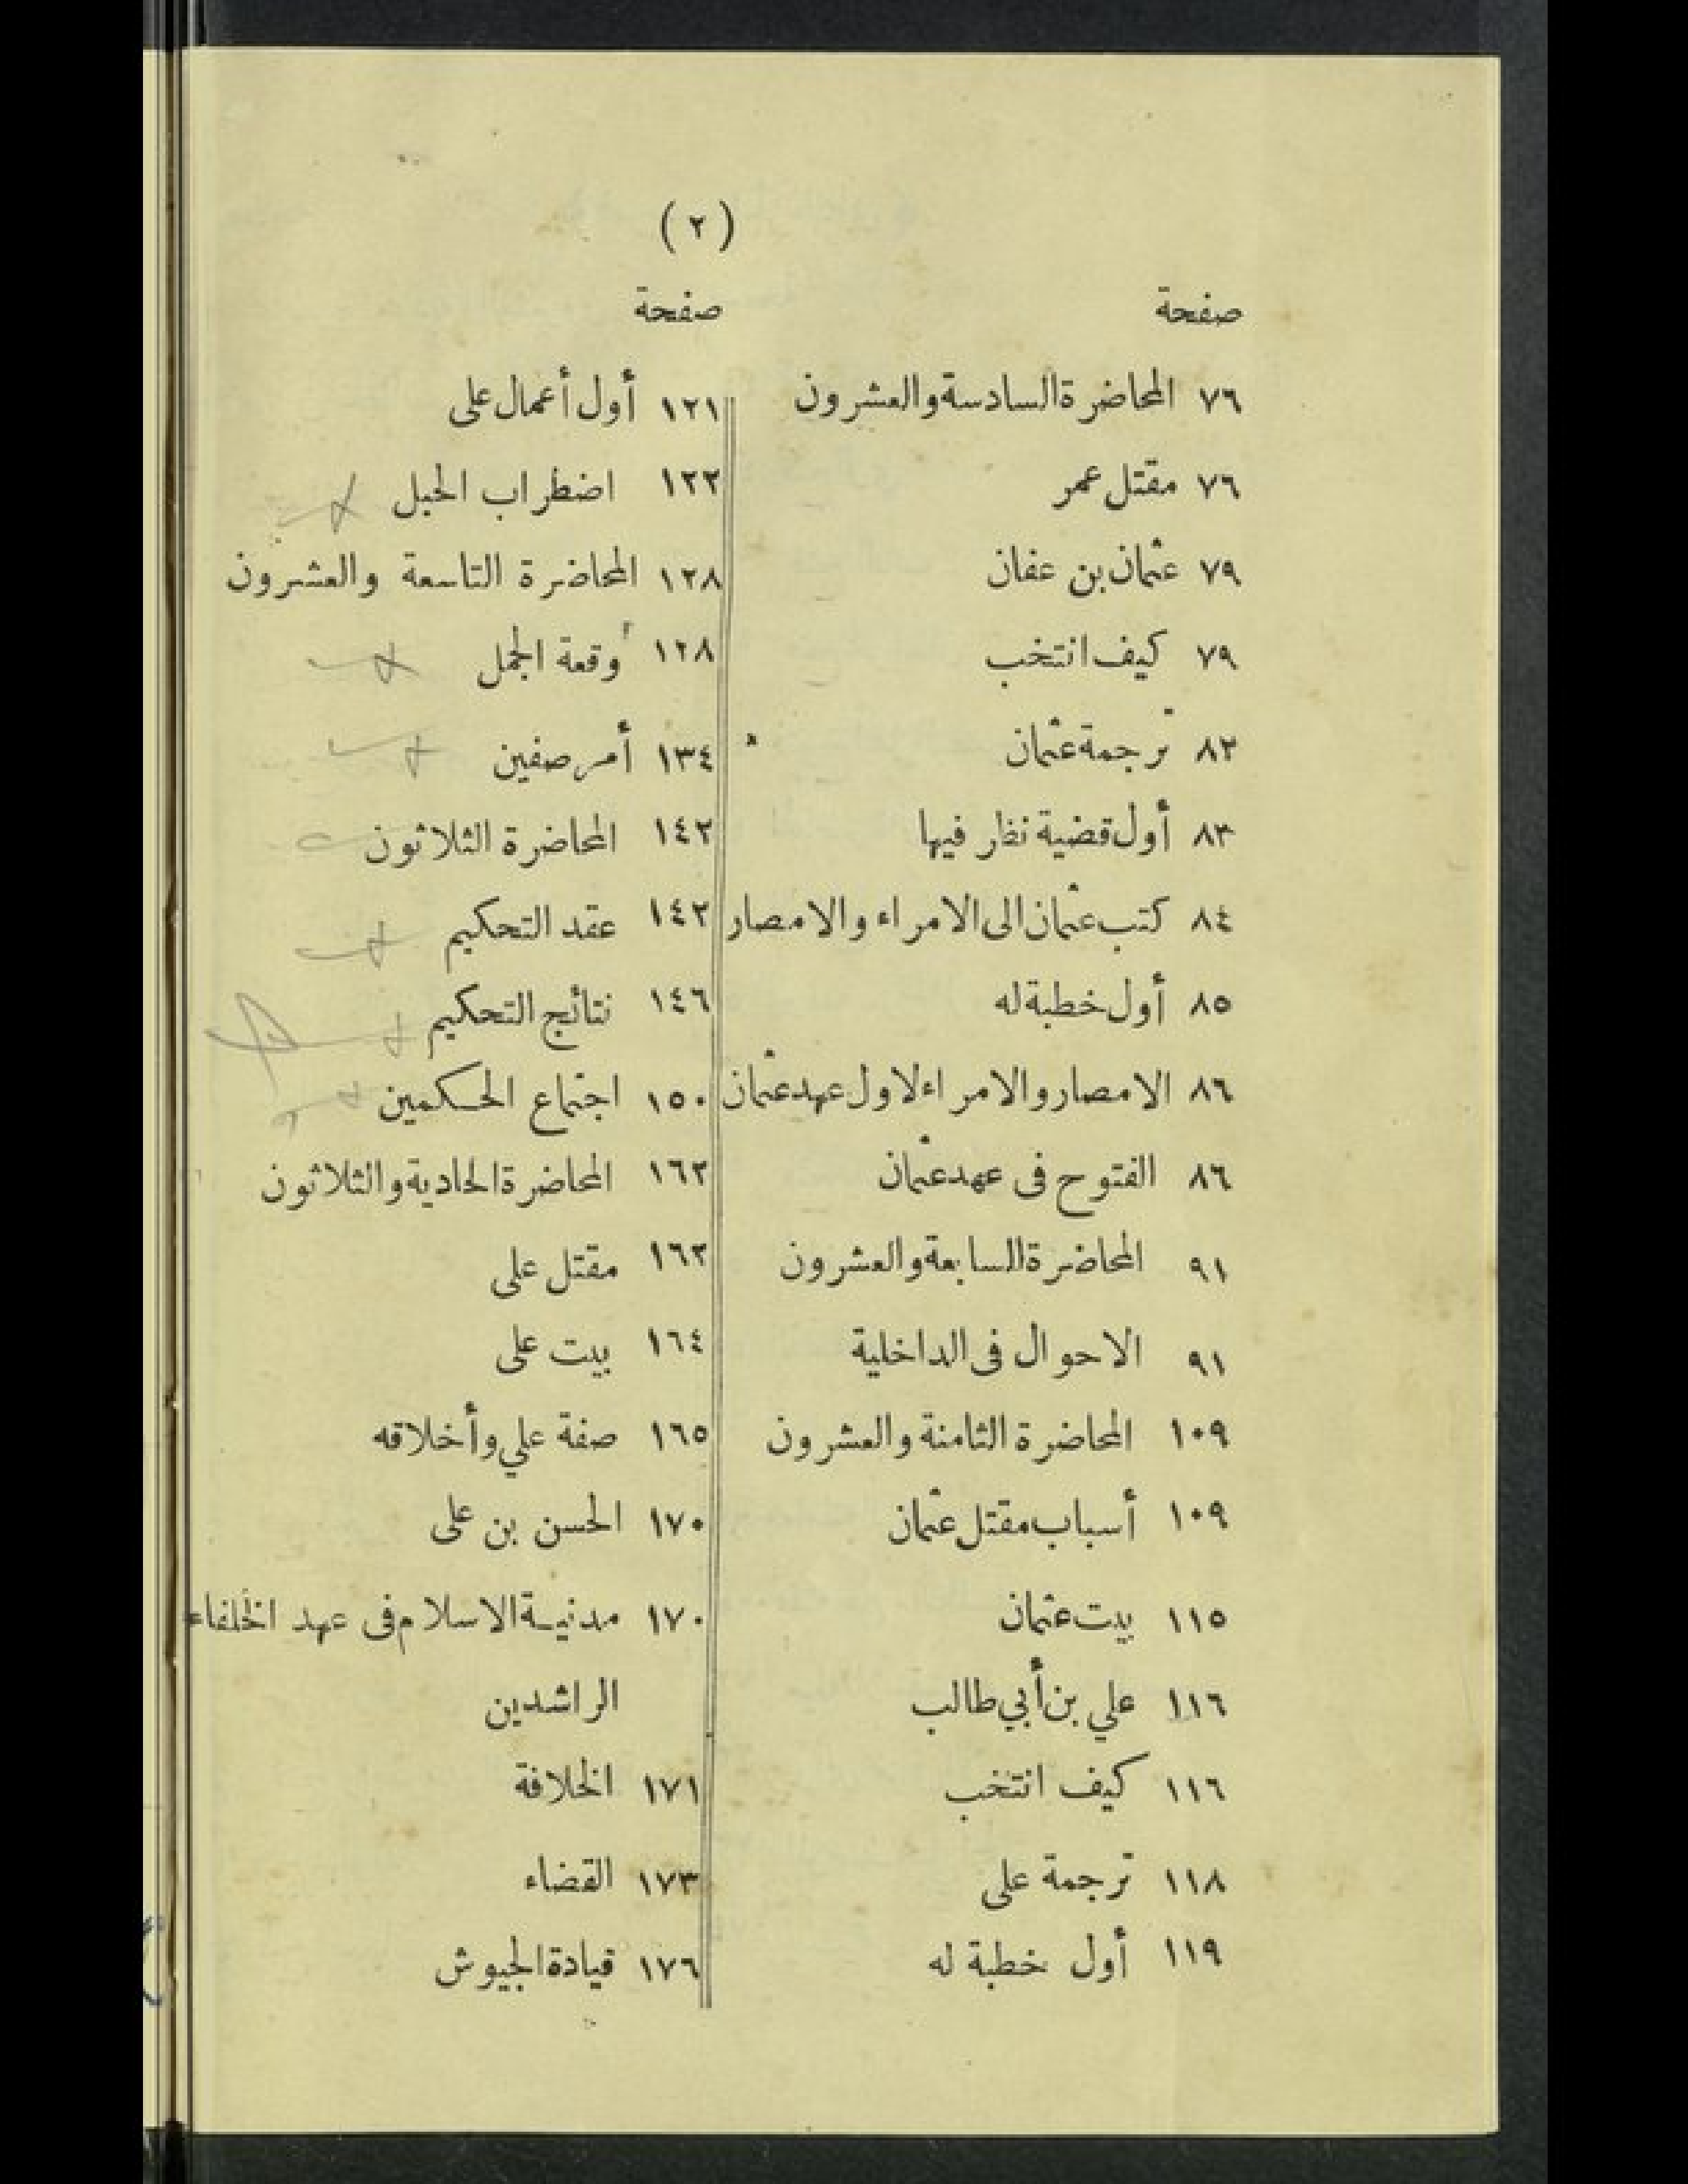 (٢)
صفحة
٧٦ المحاضرة السادسة والعشرون
٧٦ مقتل عمر
٧٩ عثمان بن عفان
٧٩ كيف انتخب
٨٢ ترجمة عثمان
٨٣ أول قضية نظر فيها
٨٤ كتب عثمان الى الامراء والامصار
٨٥ أول خطبة له
٨٦ الامصار والامراء لاول عهد عثمان
٨٦ الفتوح فى عهد عثمان
٩١ المحاضرة السابعة والعشرون
٩١ الاحوال فى الداخلية
١٠٩ المحاضرة الثامنة والعشرون
١٠٩ أسباب مقتل عثمان
١١٥ بيت عثمان
١١٦ علي بن أبي طالب
١١٦ كيف انتخب
١١٨ ترجمة على
١١٩ أول خطبة له
صفحة
١٢١ أول أعمال على
١٢٢ اضطراب الحبل
١٢٨ المحاضرة التاسعة والعشرون
١٢٨ وقعة الجمل
١٣٤ أمر صفين
١٤٢ المحاضرة الثلاثون
١٤٢ عقد التحكيم
١٤٦ نتائج التحكيم
١٥٠ اجتماع الحكمين
١٦٢ المحاضرة الحادية والثلاثون
١٦٢ مقتل على
١٦٤ بيت على
١٦٥ صفة علي وأخلاقه
١٧٠ الحسن بن على
١٧٠ مدنية الاسلام فى عهد الخلفاء
الراشدين
١٧١ الخلافة
١٧٣ القضاء
١٧٦ قيادة الجيوش